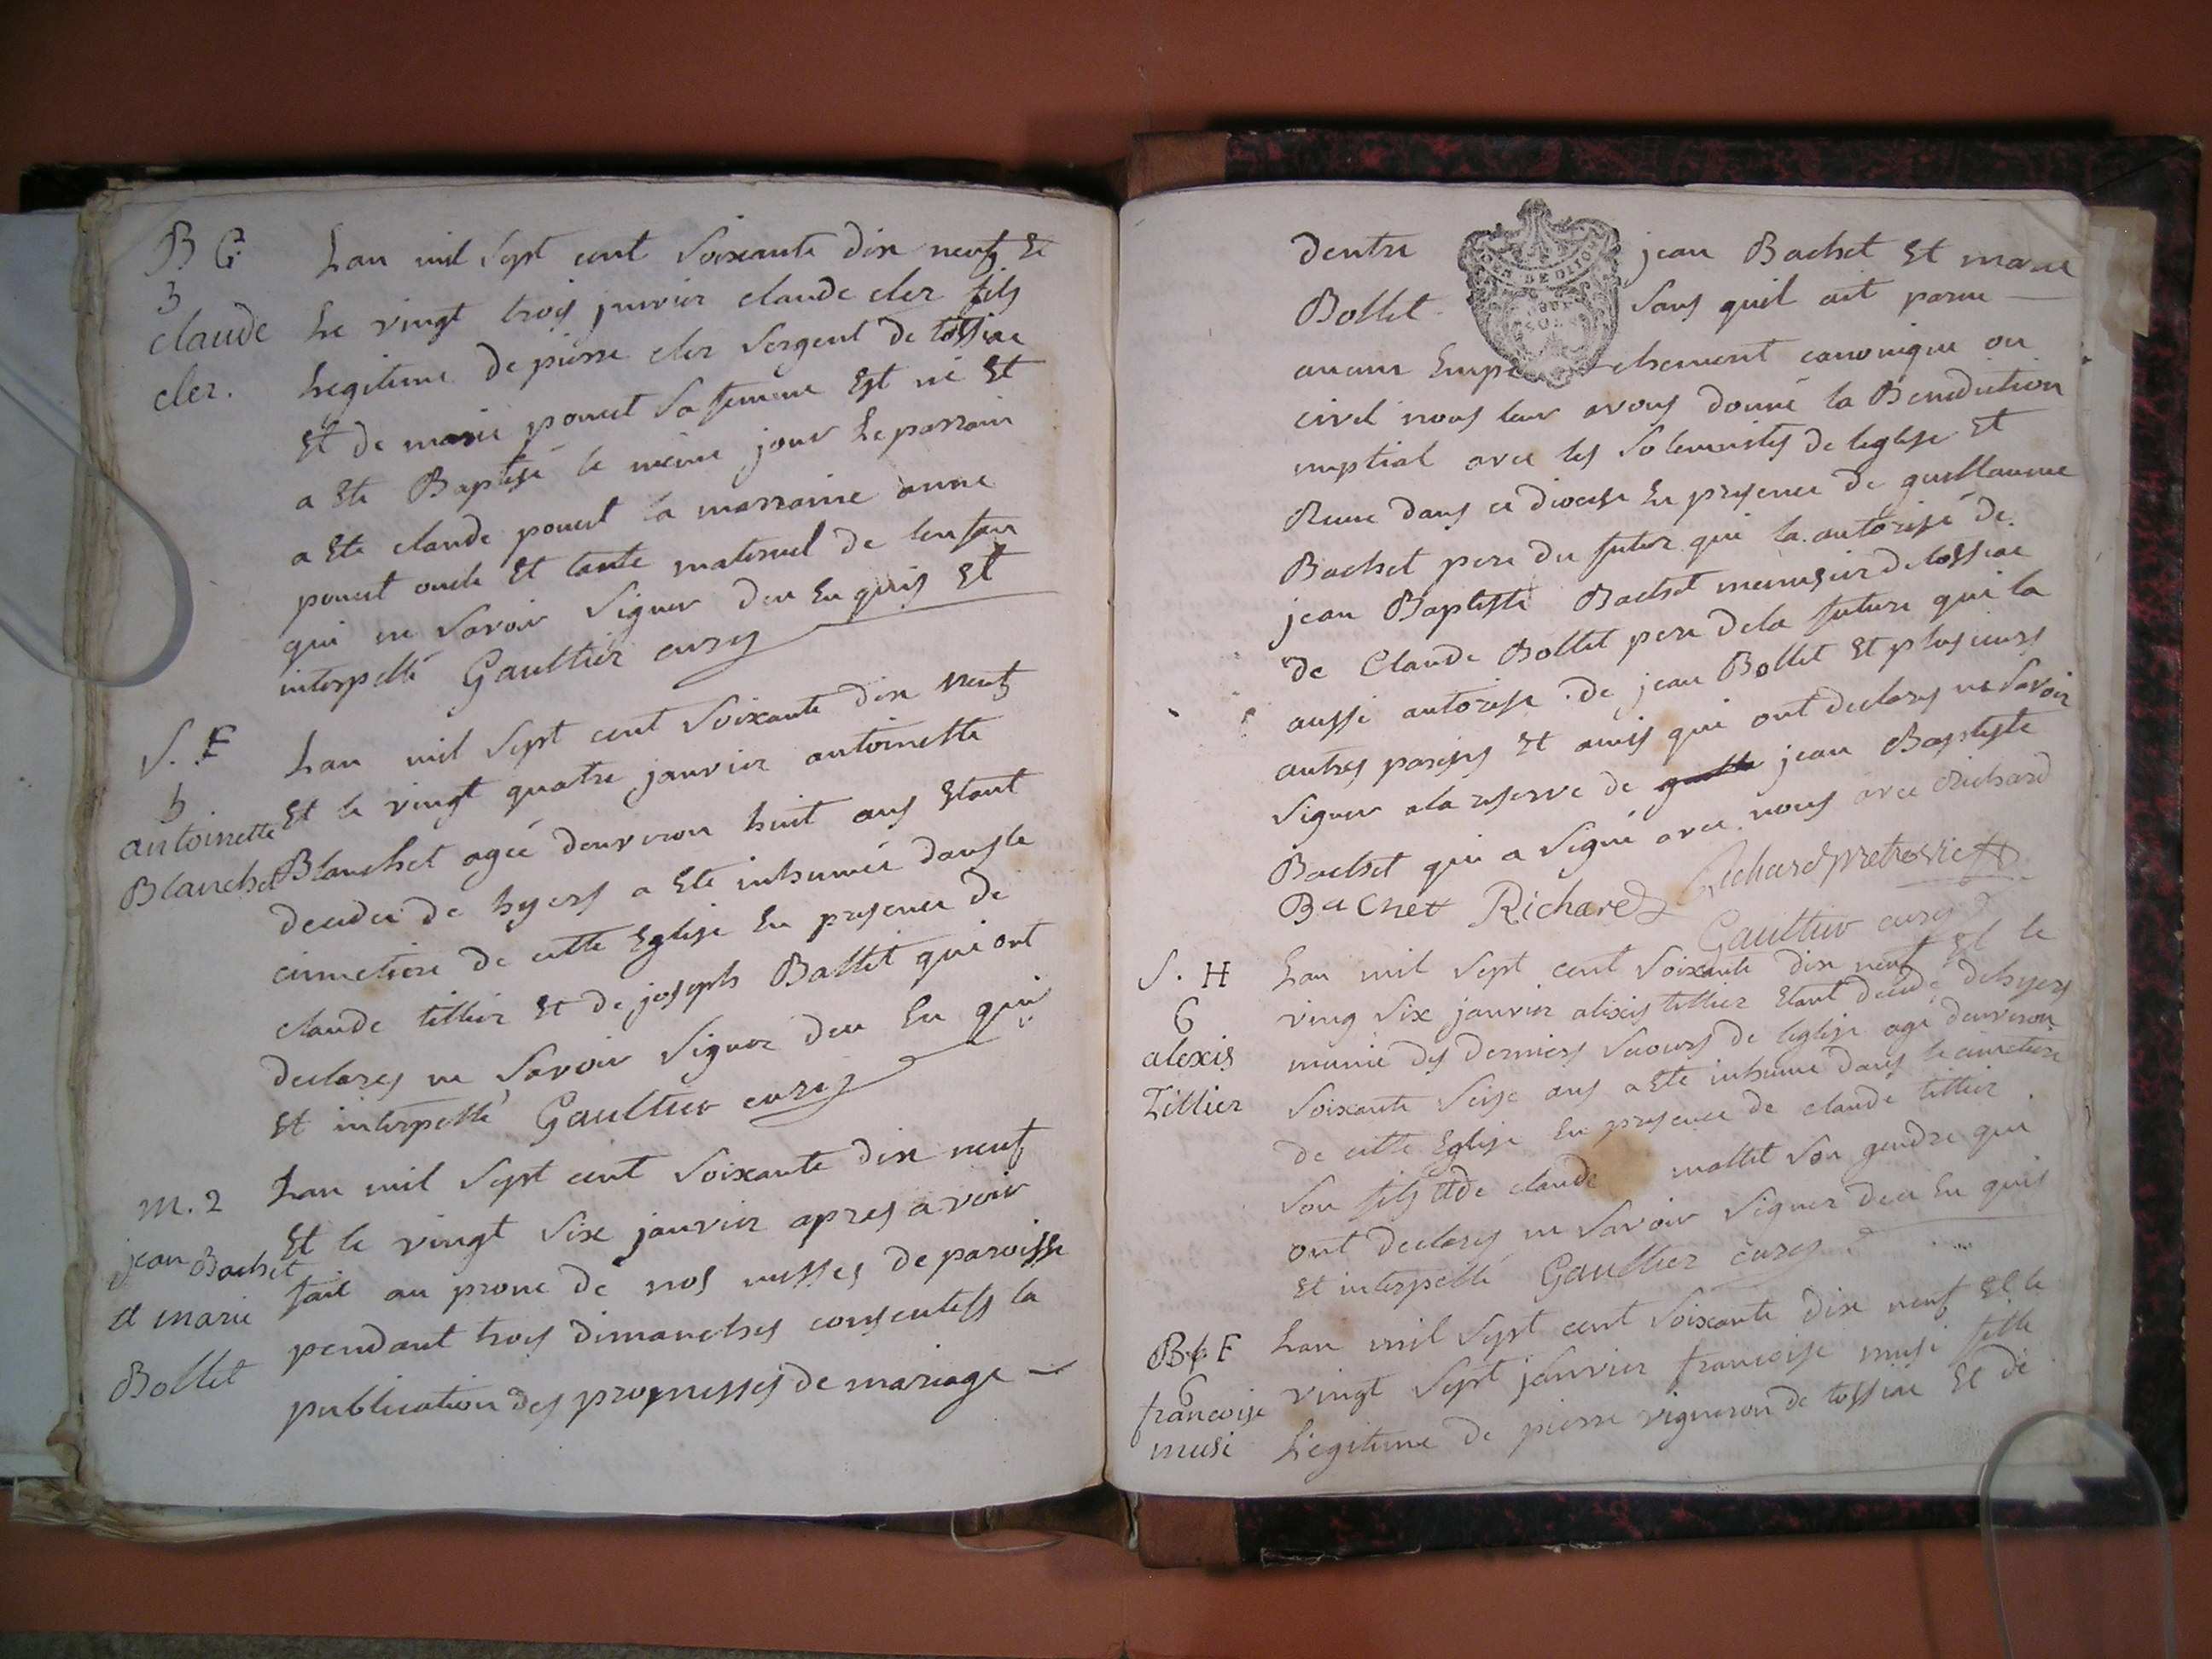 B G
3
claude
cler.
Lan mil Sept cent Soixante dix neuf Et
Le vingt trois janvier claude cler fils
Legitime de pierre cler Sergent de tossiac
Et de marie pouvet Sa femme Est né Et
a Ete Baptisé le même jour Le parrain
a Ete claude pouvet la marraine anne
pouvet oncle Et tante maternel de lenfan
qui ne Savoir Signer deu Enquis Et
interpellé Gaultier curez
S. F
5
antoinette
Blanchet
Lan mil Sept cent Soixante dix neuf
Et le vingt quatre janvier antoinette
Blanchet agée denviron huit ans Etant
decedée de hyers a Ete inhumée dans le
cimetiere de cette Eglise En presence de
claude tillier Et de joseph Ballet qui ont
declares ne Savoir Signer deu En qui
Et interpellé Gaultier curez
m. 2
jean Bachet
et marie
Bollet
Lan mil Sept cent Soixante dix neuf
Et le vingt Six janvier apres avoir
fait au prone de nos messes de paroisse
pendant trois dimanches consecutifs la
publication des promesses de mariage
dentre jean Bachet Et marie
Bollet Sans quil ait parue
aucun Empechement canonique ou
civil nous leur avons donné la Benediction
nuptial avec les Solemnites de leglise Et
Reine dans ce diocese En presence de guillaume
Bachet pere du futur qui la autorisé de
jean Baptiste Bachet menusier de tossiac
de Claude Bollet pere de la future qui la
aussi autorise de jean Bollet Et plusieurs
autres parens Et amis qui ont declares ne Savoir
Signer a la reserve de jean Baptiste
Bachet qui a Signé avec nous avec Richard
Bachet Richard Richard pretre vic
Gaultier curez
S. H
6
alexis
Tillier
Lan mil Sept cent Soixante dix neuf Et le
ving Six janvier alexis tillier Etant decede de hyers
munie des derniers Secours de leglise age denviron
Soixante Seise ans a Ete inhume dans le cimetiere
de cette Eglise En presence de claude tillier
Son fils Et de claude mallet Son gendre qui
ont declares ne Savoir Signer deu En quis
Et interpellé Gaultier curez
B F
6
francoise
musi
Lan mil Sept cent Soixante dix neuf Et le
vingt Sept janvier francoise musi fille
Legitime de pierre vigneron de tossiac Et de